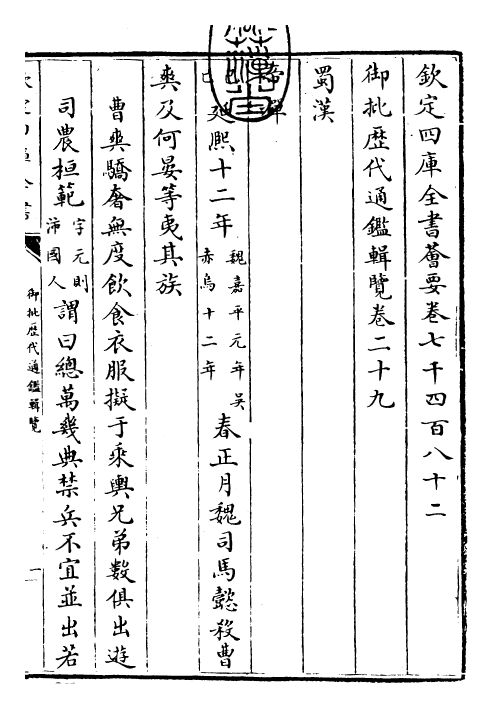 欽定四庫全書薈要卷七千四百八十二
御批歷代通鑑輯覽卷二十九
蜀漢
帝禪
己巳延熙十二年魏嘉平元年吳赤烏十二年春正月魏司馬懿殺曹
爽及何晏等夷其族
曹爽驕奢無度飲食衣服擬于乘輿兄弟數俱出遊
司農桓範字元則沛國人謂曰總萬幾典禁兵不宜並出若
御批歷代通鑑輯覽
一